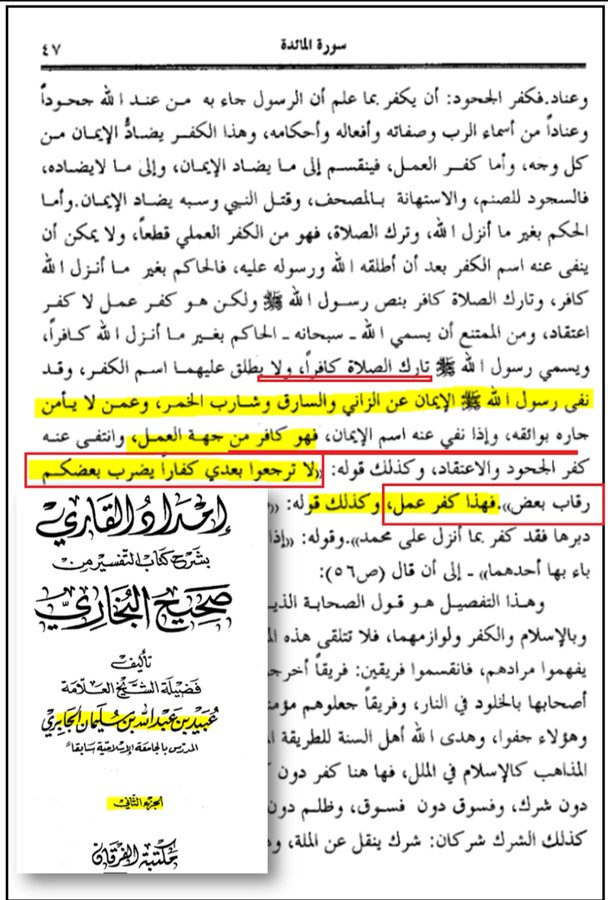 سورة المائدة
٤٧
وعناد.فكفر الجحود: أن يكفر بما علم أن الرسول جاء به من عند الله جحوداً
وعناداً من أسماء الرب وصفاته وأفعاله وأحكامه، وهذا الكفر يضادُّ الإيمان من
كل وجه، وأما كفر العمل، فينقسم إلى ما يضاد الإيمان، وإلى ما لايضاده،
فالسجود للصنم، والاستهانة بالمصحف، وقتل النبي وسبه يضاد الإيمان.وأما
الحكم بغير ما أنزل الله، وترك الصلاة، فهو من الكفر العملي قطعاً، ولا يمكن أن
ينفى عنه اسم الكفر بعد أن أطلقه الله ورسوله عليه، فالحاكم بغير ما أنزل الله
كافر، وتارك الصلاة كافر بنص رسول الله ﷺ ولكن هو كفر عمل لا كفر
اعتقاد، ومن الممتنع أن يسمي الله ـ سبحانه ـ الحاكم بغير ما أنزل الله كافراً،
ويسمي رسول الله ﷺ تارك الصلاة كافراً، ولا يطلق عليهما اسم الكفر، وقد
نفى رسول الله ﷺ الإيمان عن الزاني والسارق وشارب الخمر، وعمن لا يأمن
جاره بوائقه، وإذا نفي عنه اسم الإيمان، فهو كافر من جهة العمل، وانتفى عنه
كفر الجحود والاعتقاد، وكذلك قوله: «لا ترجعوا بعدي كفاراً يضرب بعضكم
رقاب بعض».فهذا كفر عمل، وكذلك قوله: «
دبرها فقد كفر بما أنزل على محمد».وقوله: «إذا
باء بها أحدهما» ـ إلى أن قال (ص٥٦):
وهذا التفصيل هو قول الصحابة الذي
وبالإسلام والكفر ولوازمهما، فلا تتلقى هذه الم
يفهموا مرادهم، فانقسموا فريقين: فريقاً أخرج
أصحابها بالخلود في النار، وفريقاً جعلوهم مؤمن
وهؤلاء جفوا، وهدى الله أهل السنة للطريقة ال
المذاهب كالإسلام في الملل، فها هنا كفر دون ك
دون شرك، وفسوق دون فسوق، وظلم دون
كذلك الشرك شركان: شرك ينقل عن الملة، وه
إمداد القاري
بشرح كتاب التفسير من
صحيح البخاري
تأليف
فضيلة الشيخ العلامة
عبيد بن عبد الله بن سليمان الجابري
المدرس بالجامعة الإسلامية سابقاً
الجزء الثاني
مكتبة الفرقان